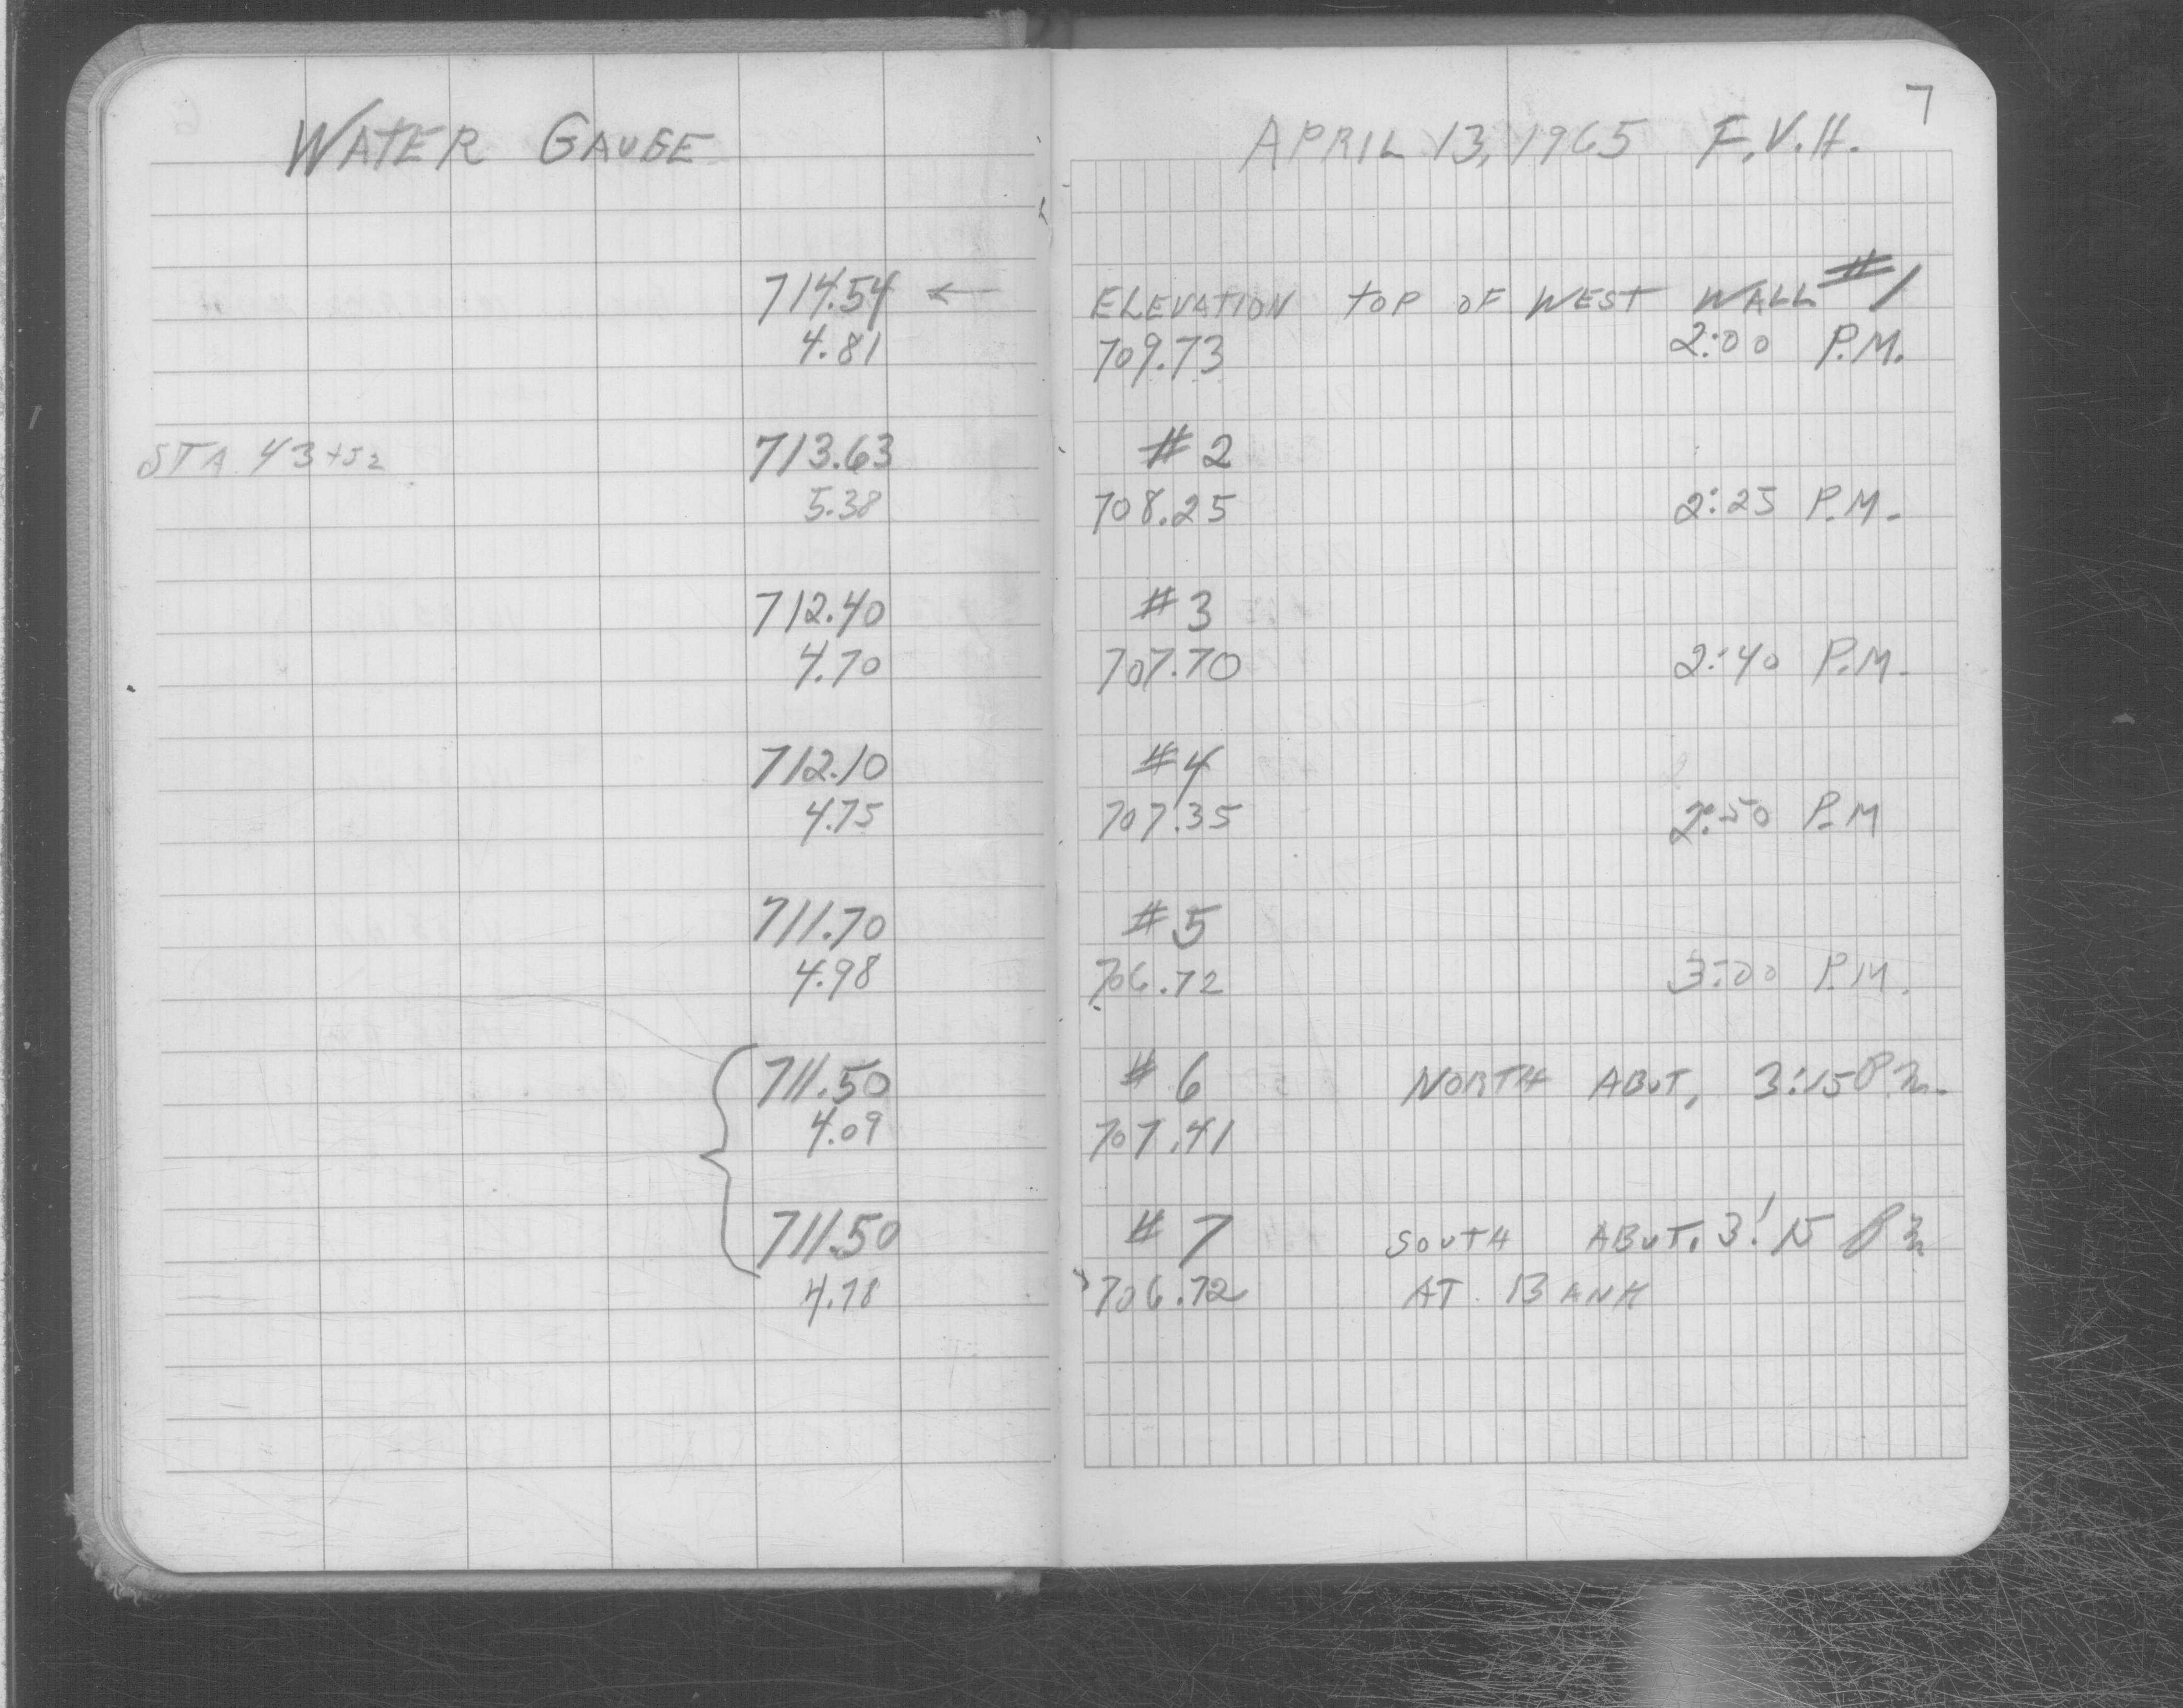 WATER GAUGE
714.54 ←
4.81
STA 43+52
713.63
5.38
712.40
4.70
712.10
4.75
711.70
4.98
711.50
4.09
711.50
4.78
7
APRIL 13, 1965 F.V.H.
ELEVATION TOP OF WEST WALL #1
709.73 2:00 P.M.
#2
708.25 2:25 P.M.
#3
707.70 2:40 P.M.
#4
707.35 2:50 P.M
#5
706.72 3:00 P.M.
#6 NORTH ABUT, 3:15 P.M.
707.41
#7 SOUTH ABUT. 3:15 P M
706.72 AT BANK